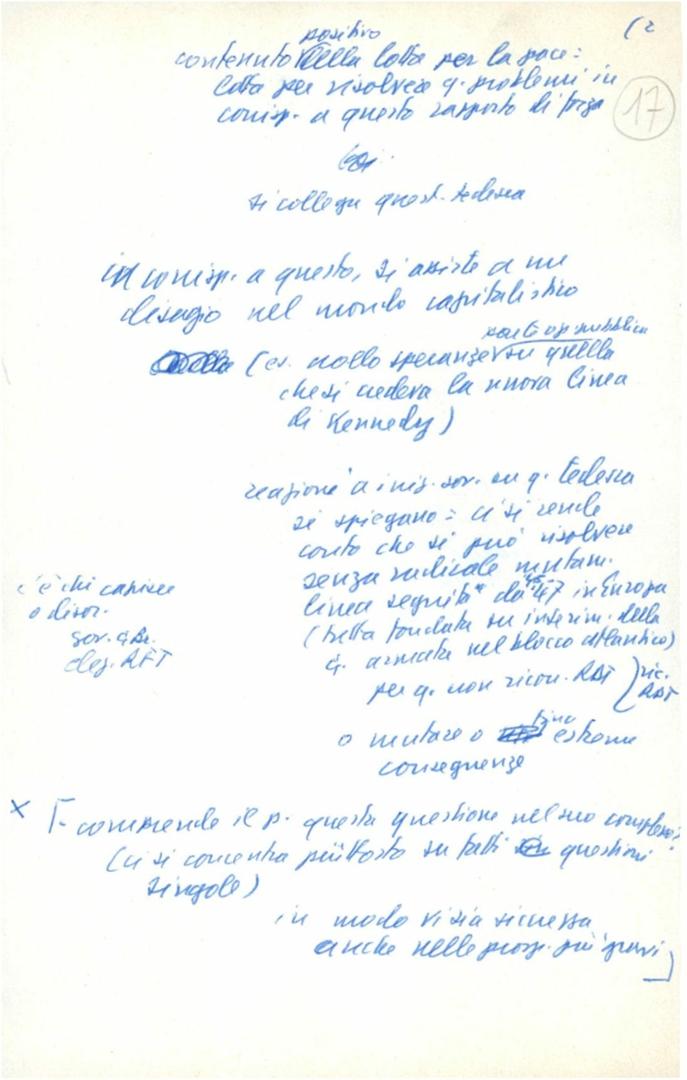 (2
17
positivo
contenuto della lotta per la pace:
lotta per risolvere q. problemi in
corrisp. a questo rapporto di forza
si collega quest. tedesca
in corrisp. a questo, si assiste a un
disagio nel mondo capitalistico
parte op. pubblica
(es. crollo speranze su quella
che si credeva la nuova linea
di Kennedy)
reazione a iniz. sov. su q. tedesca
si spiegano: ci si rende
conto che si può risolvere
senza radicale mutam.
linea seguita da 45-47 in Europa
(tutta fondata su inserim. della
q. armata nel blocco atlantico)
per q. non ricon. RDT
ric. RDT
c'è chi capisce
o disor.
sov. q. Br.
elez. RFT
o mutare o fino estreme
conseguenze
x comprende il p. questa questione nel suo complesso?
(ci si concentra piuttosto su fatti questioni
singole)
in modo vi sia sicurezza
anche nelle prosp. più gravi